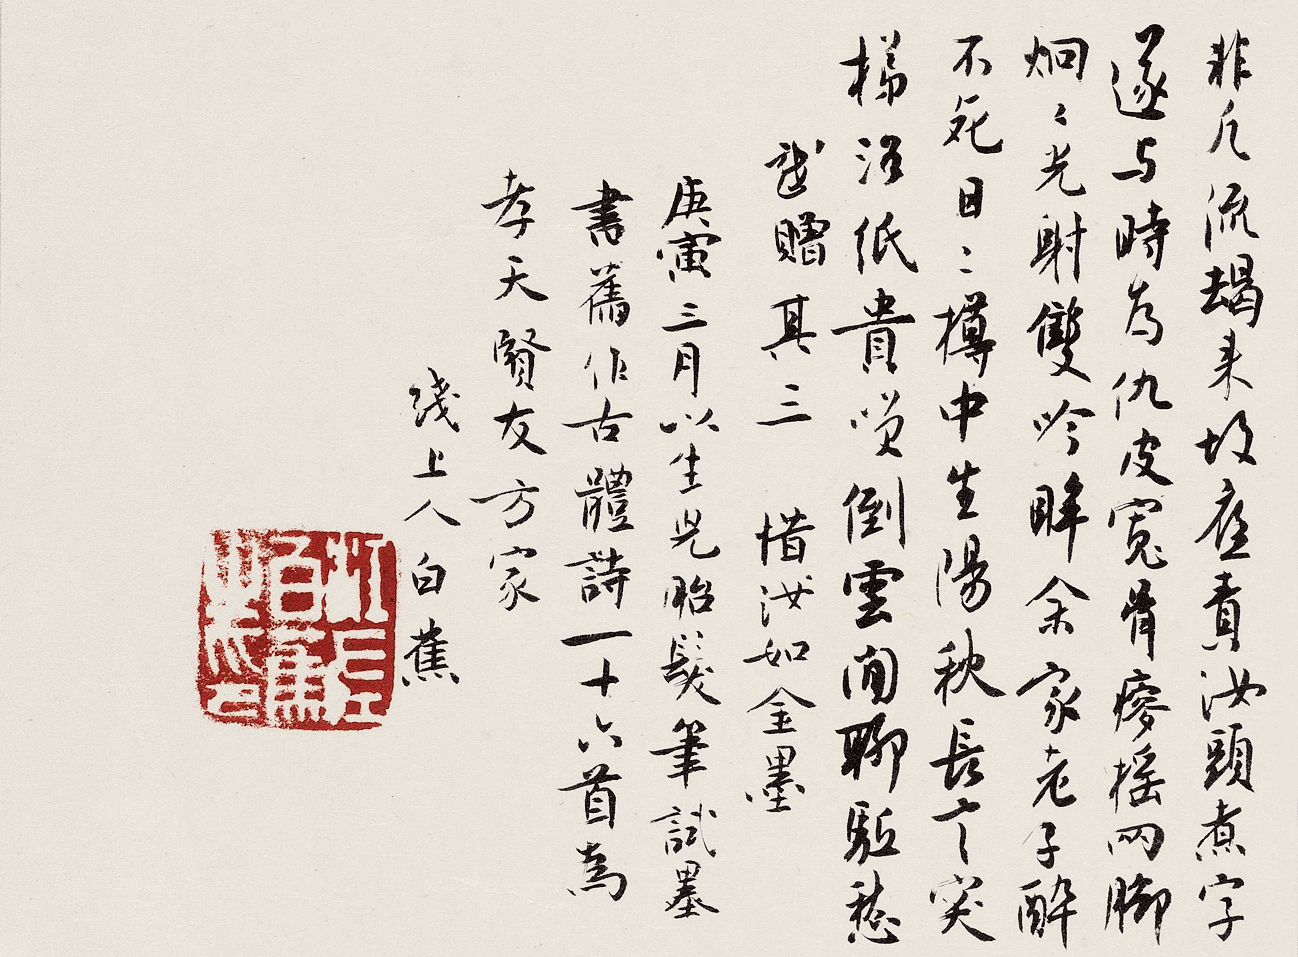 非凡流朅来故应責汝頭煮字
遂与時为仇皮寬骨瘮摇两脚
炯々光射雙吟眸余家老子醉
不死日々樽中生陽秋長丁突
梯滔紙貴噗倒雲间聊驅愁
戲贈其三 惜汝如金墨
庚寅三月以生兒胎髮筆試墨
書舊作古體詩一十六首為
孝天賢友方家
淺上人白蕉
白蕉